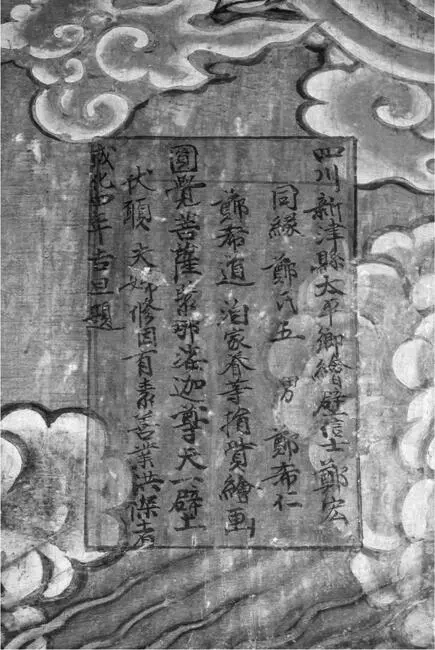 四川新津縣太平鄉繪壁信士鄭宏
同緣鄭氏五 男 鄭希仁
鄭希道 洎家眷等捐貲繪画
圓覺菩薩 那 迦尊天一壁
伏願夫婦修因有素善業洪深者
成化四年吉旦題